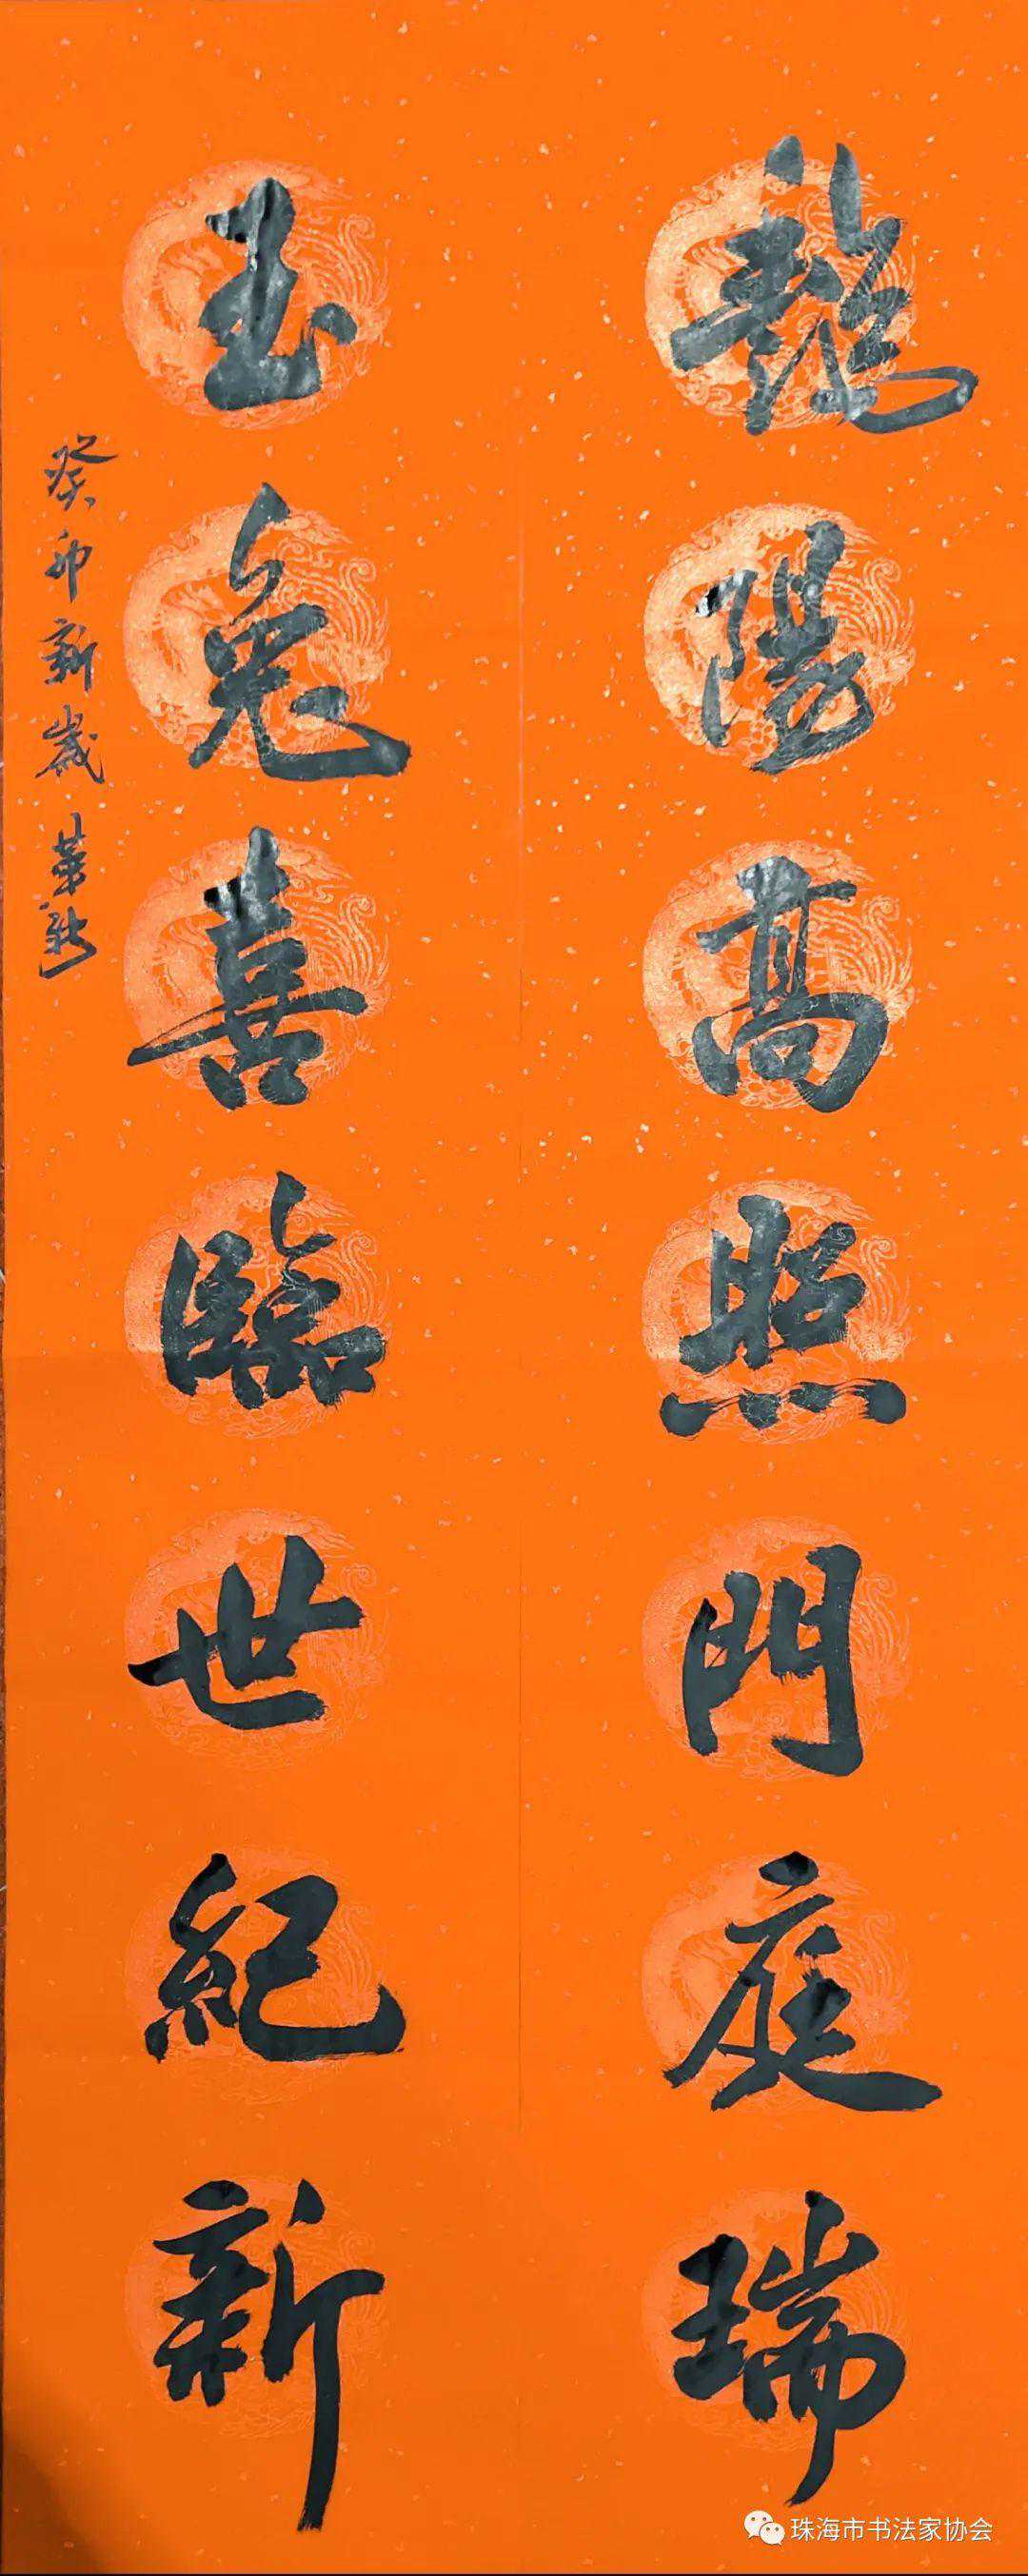 艷陽高照門庭瑞
玉兔喜臨世紀新
癸卯新歲 華
珠海市书法家协会